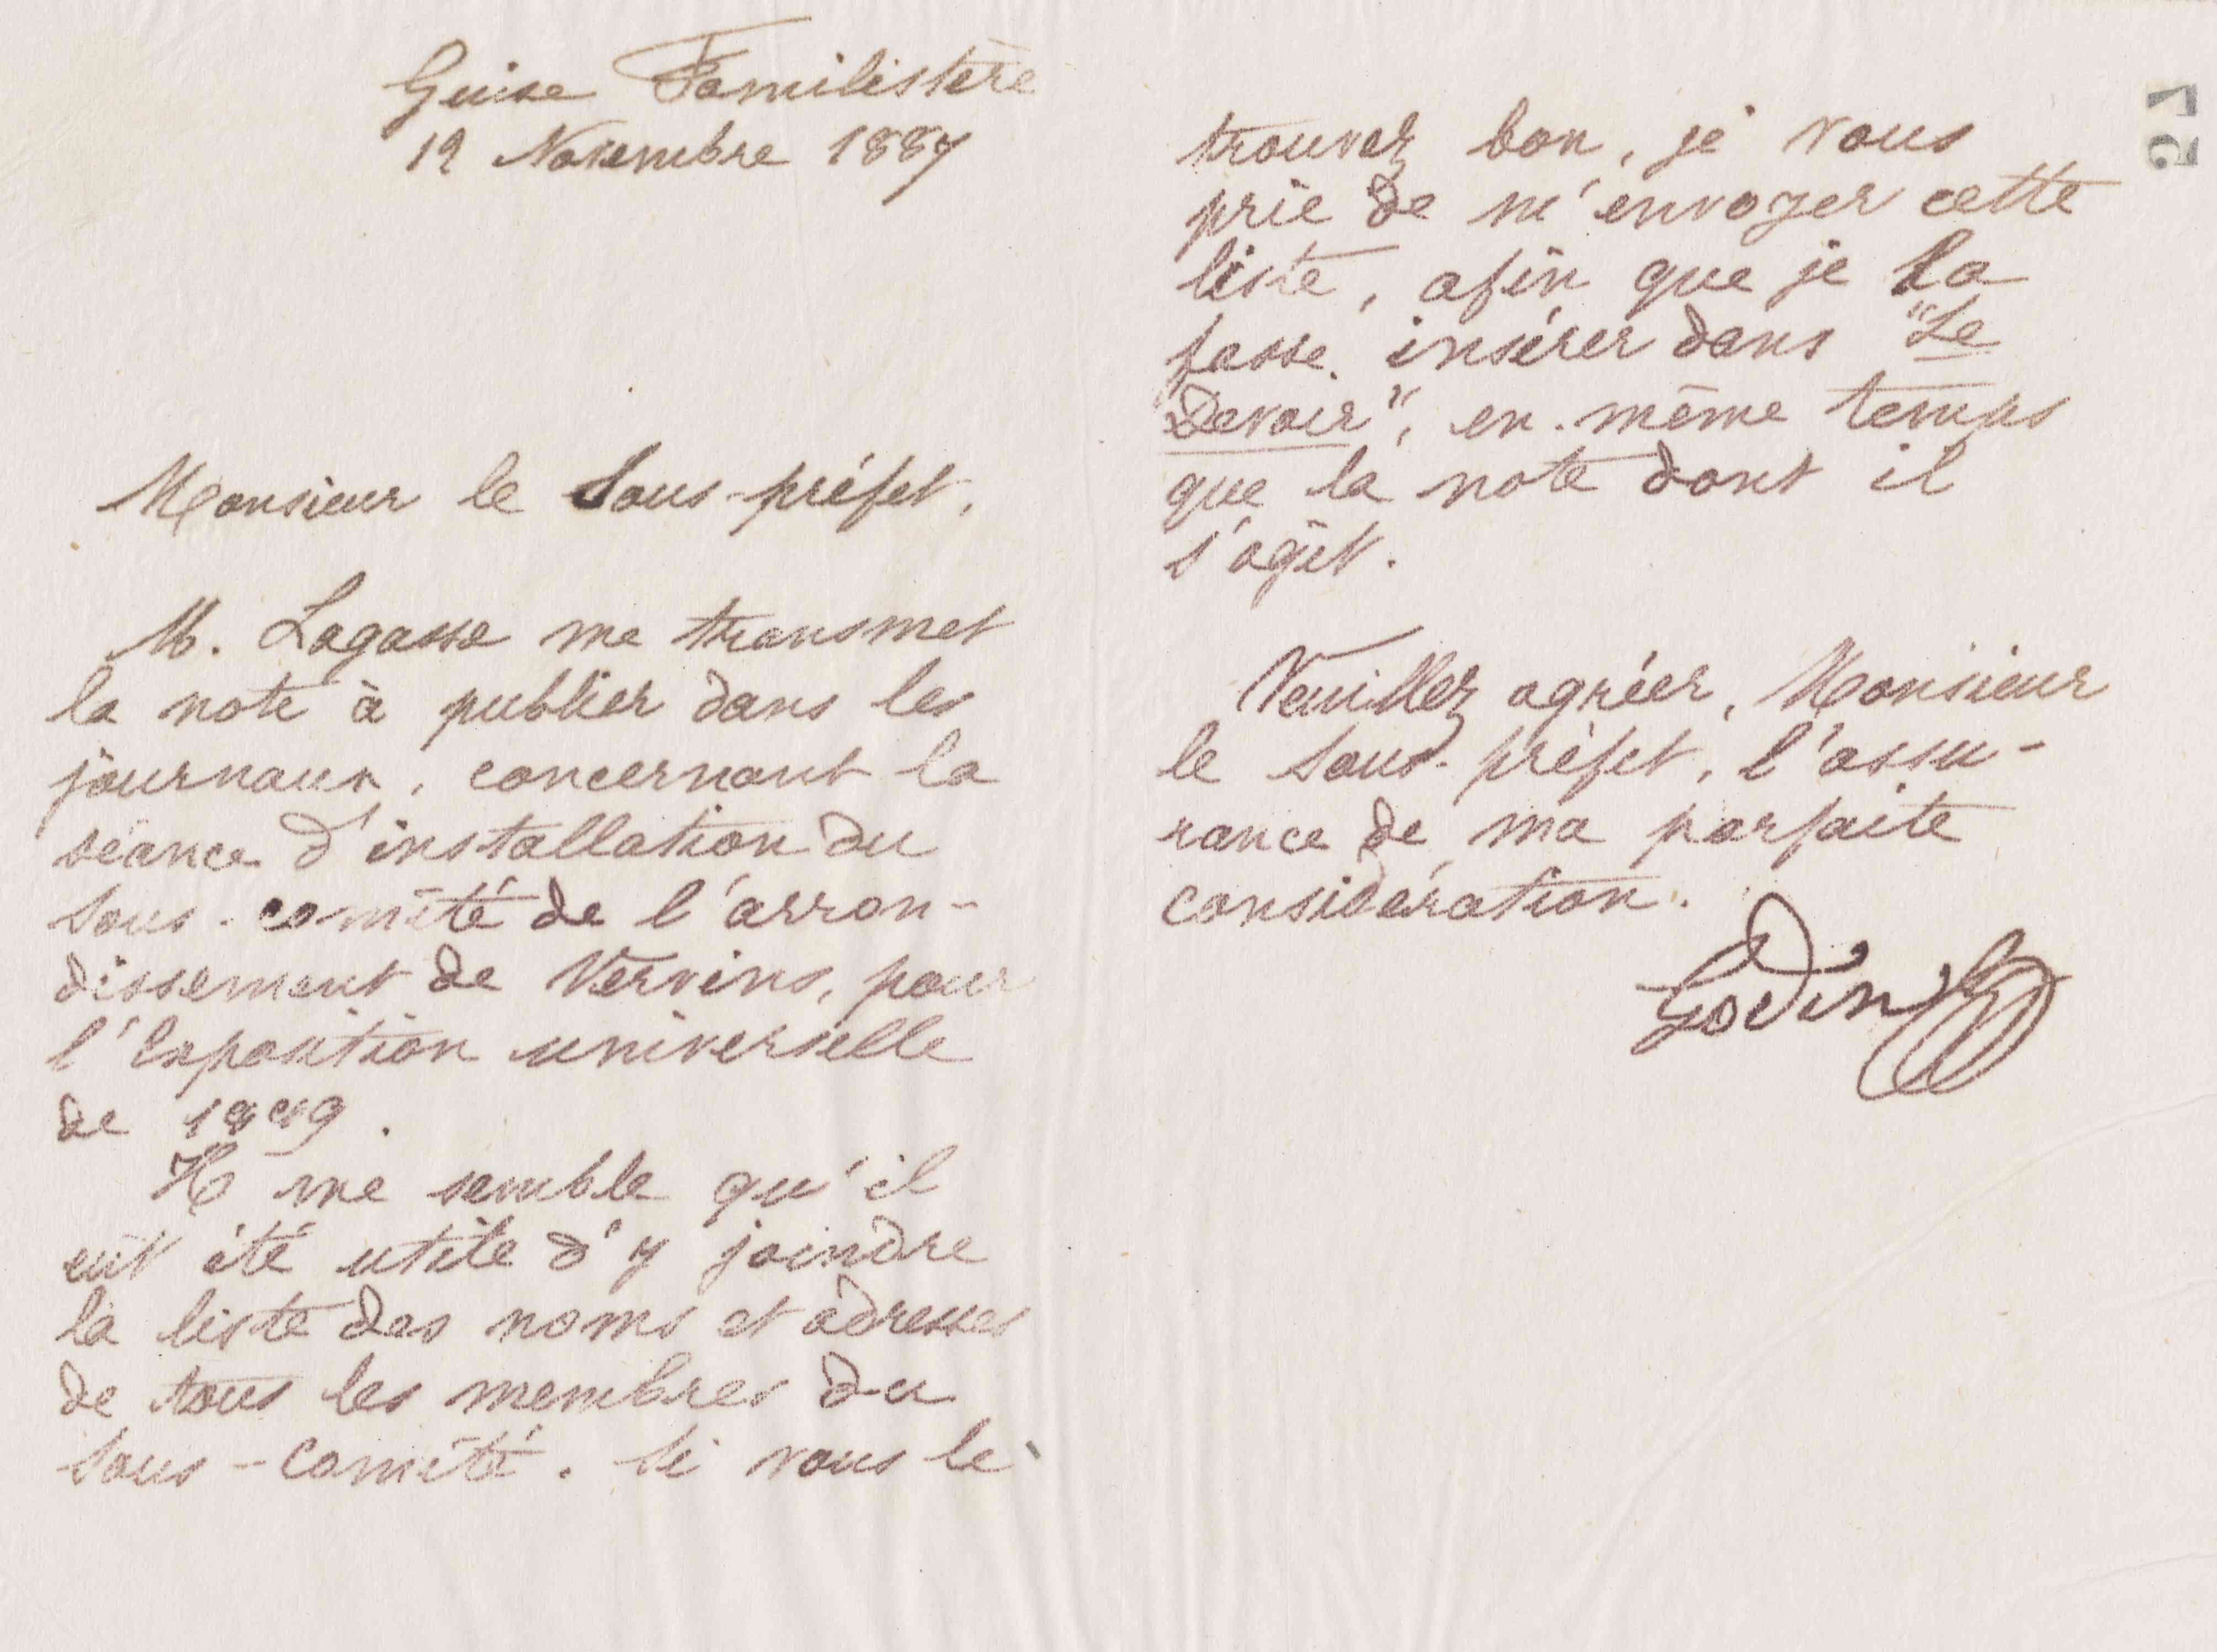 Guise Familistère
12 Novembre 1887
Monsieur le Sous-préfet,
M. Lagasse me transmet
la note à publier dans les
journaux, concernant la
séance d'installation du
sous-comité de l'arron-
dissement de Vervins, pour
l'Exposition universelle
de 1889.
Il me semble qu'il
eût été utile d'y joindre
la liste des noms et adresses
de tous les membres du
sous-comité. Si vous le
trouvez bon, je vous
prie de m'envoyer cette
liste, afin que je la
fasse insérer dans "Le
Devoir", en même temps
que la note dont il
s'agit.
Veuillez agréer, Monsieur
le Sous-préfet, l'assu-
rance de ma parfaite
considération.
Godin
57